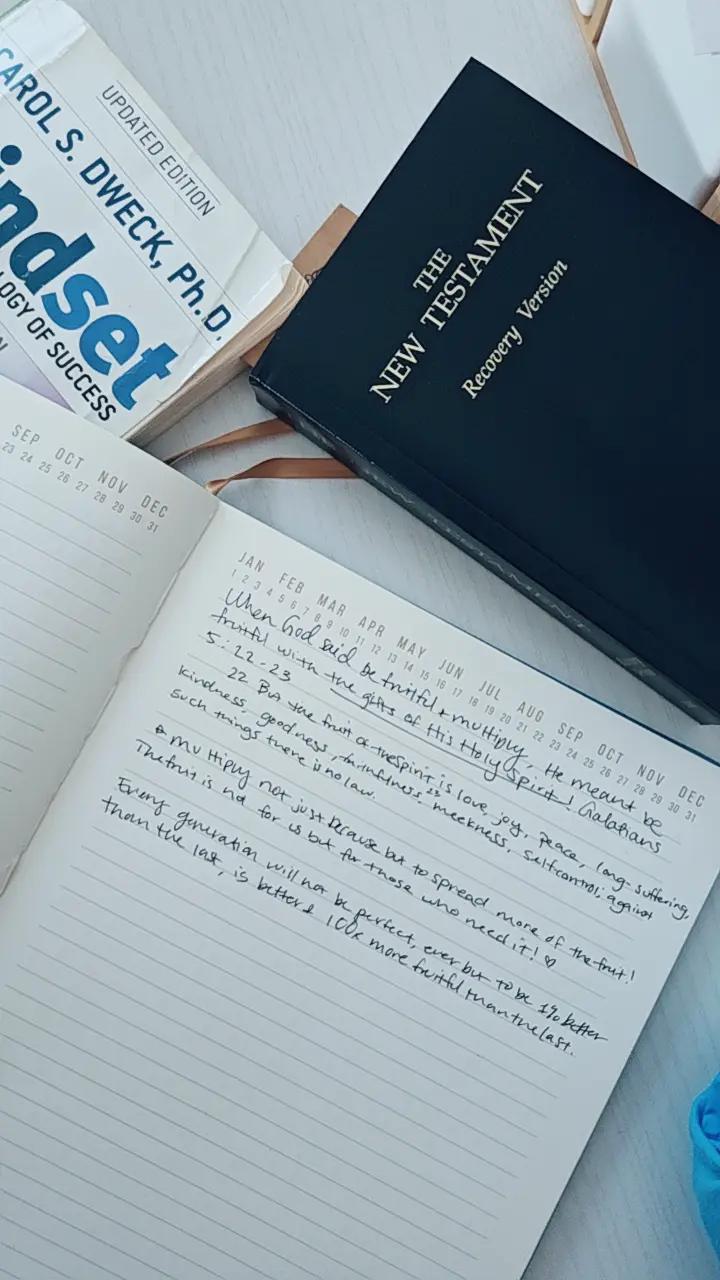 UPDATED EDITION
CAROL S. DWECK, Ph.D.
indset
LOGY OF SUCCESS
THE
NEW TESTAMENT
Recovery Version
NEW TESTAMENT
SEP OCT NOV DEC
23 24 25 26 27 28 29 30 31
JAN FEB MAR APR MAY JUN JUL AUG SEP OCT NOV DEC
1 2 3 4 5 6 7 8 9 10 11 12 13 14 15 16 17 18 19 20 21 22 23 24 25 26 27 28 29 30 31
When God said be fruitful + multiply, He meant be
fruitful with the gifts of His Holy Spirit! Galatians
5:22-23
22 But the fruit of the Spirit is love, joy, peace, long-suffering,
kindness, goodness, faithfulness, 23 meekness, self control; against
such things there is no law.
& multiply not just because but to spread more of the fruit!
The fruit is not for us but for those who need it! ♡
Every generation will not be perfect, ever but to be 1% better
than the last, is better & 100x more fruitful than the last.